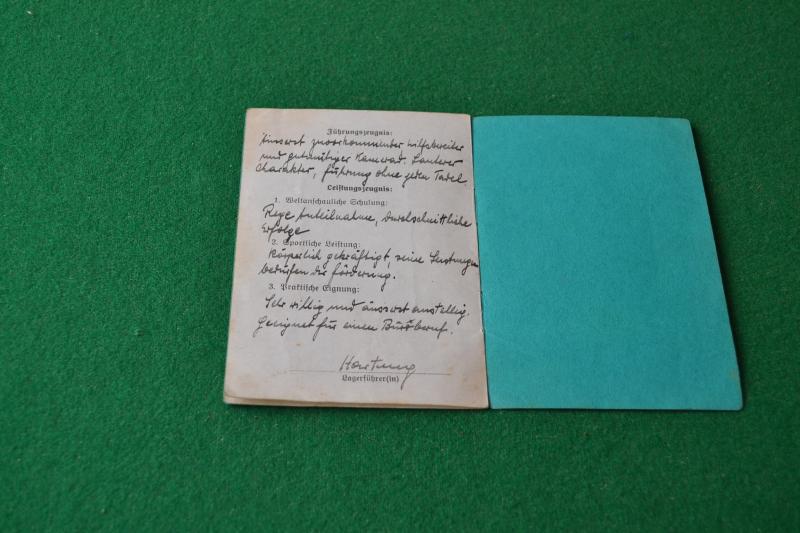 Führungszeugnis:
Äusserst zuvorkommender hilfsbereiter
und gutmütiger Kamerad. Lauterer
Charakter, Führung ohne jeden Tadel
Leistungszeugnis:
1. Weltanschauliche Schulung:
Rege Anteilnahme, durchschnittliche
Erfolge
2. Sportliche Leistung:
Körperlich gekräftigt, seine Leistungen
bedürfen der Förderung.
3. Praktische Eignung:
Sehr willig und äusserst anstellig.
Geeignet für einen Büroberuf.
Hartung
Lagerführer(in)